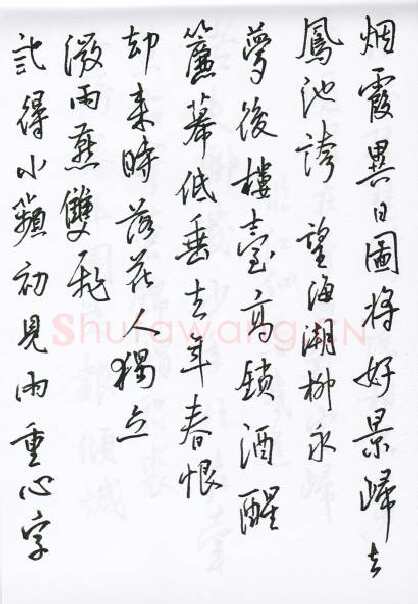 烟霞異日圖將好景歸去
鳳池誇 望海潮柳永
夢後樓臺高鎖酒醒
簾幕低垂去年春恨
却来時 落花人獨立
微雨燕雙飛
記得小蘋初見兩重心字
Shufawang.CN